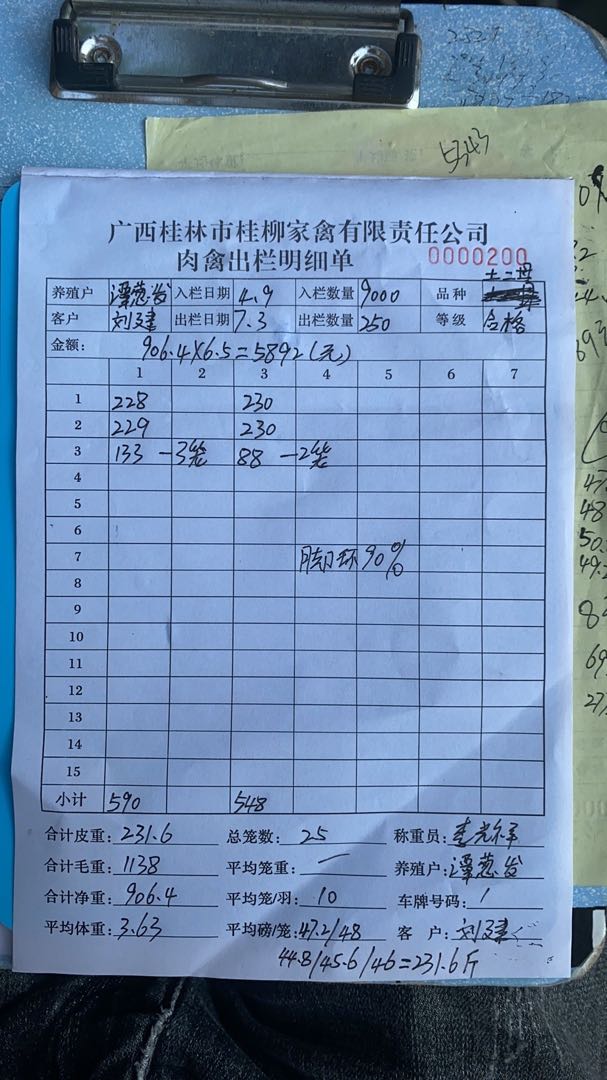 5343
广西桂林市桂柳家禽有限责任公司
肉禽出栏明细单 0000200
养殖户 谭慈发 入栏日期 4.9 入栏数量 9000 品种 土二母
客户 刘建 出栏日期 7.3 出栏数量 250 等级 合格
金额: 906.4×6.5=5892(元)
1 2 3 4 5 6 7
1 228 230
2 229 230
3 133 -3笼 88 -2笼
4
5
6
7 脚环90%
8
9
10
11
12
13
14
15
小计 590 548
合计皮重: 231.6 总笼数: 25 称重员:
合计毛重: 1138 平均笼重: 一 养殖户: 谭慈发
合计净重: 906.4 平均笼/羽: 10 车牌号码: /
平均体重: 3.63 平均磅/笼: 47.2/48 客户: 刘建
44.8/45.6/46=231.6斤